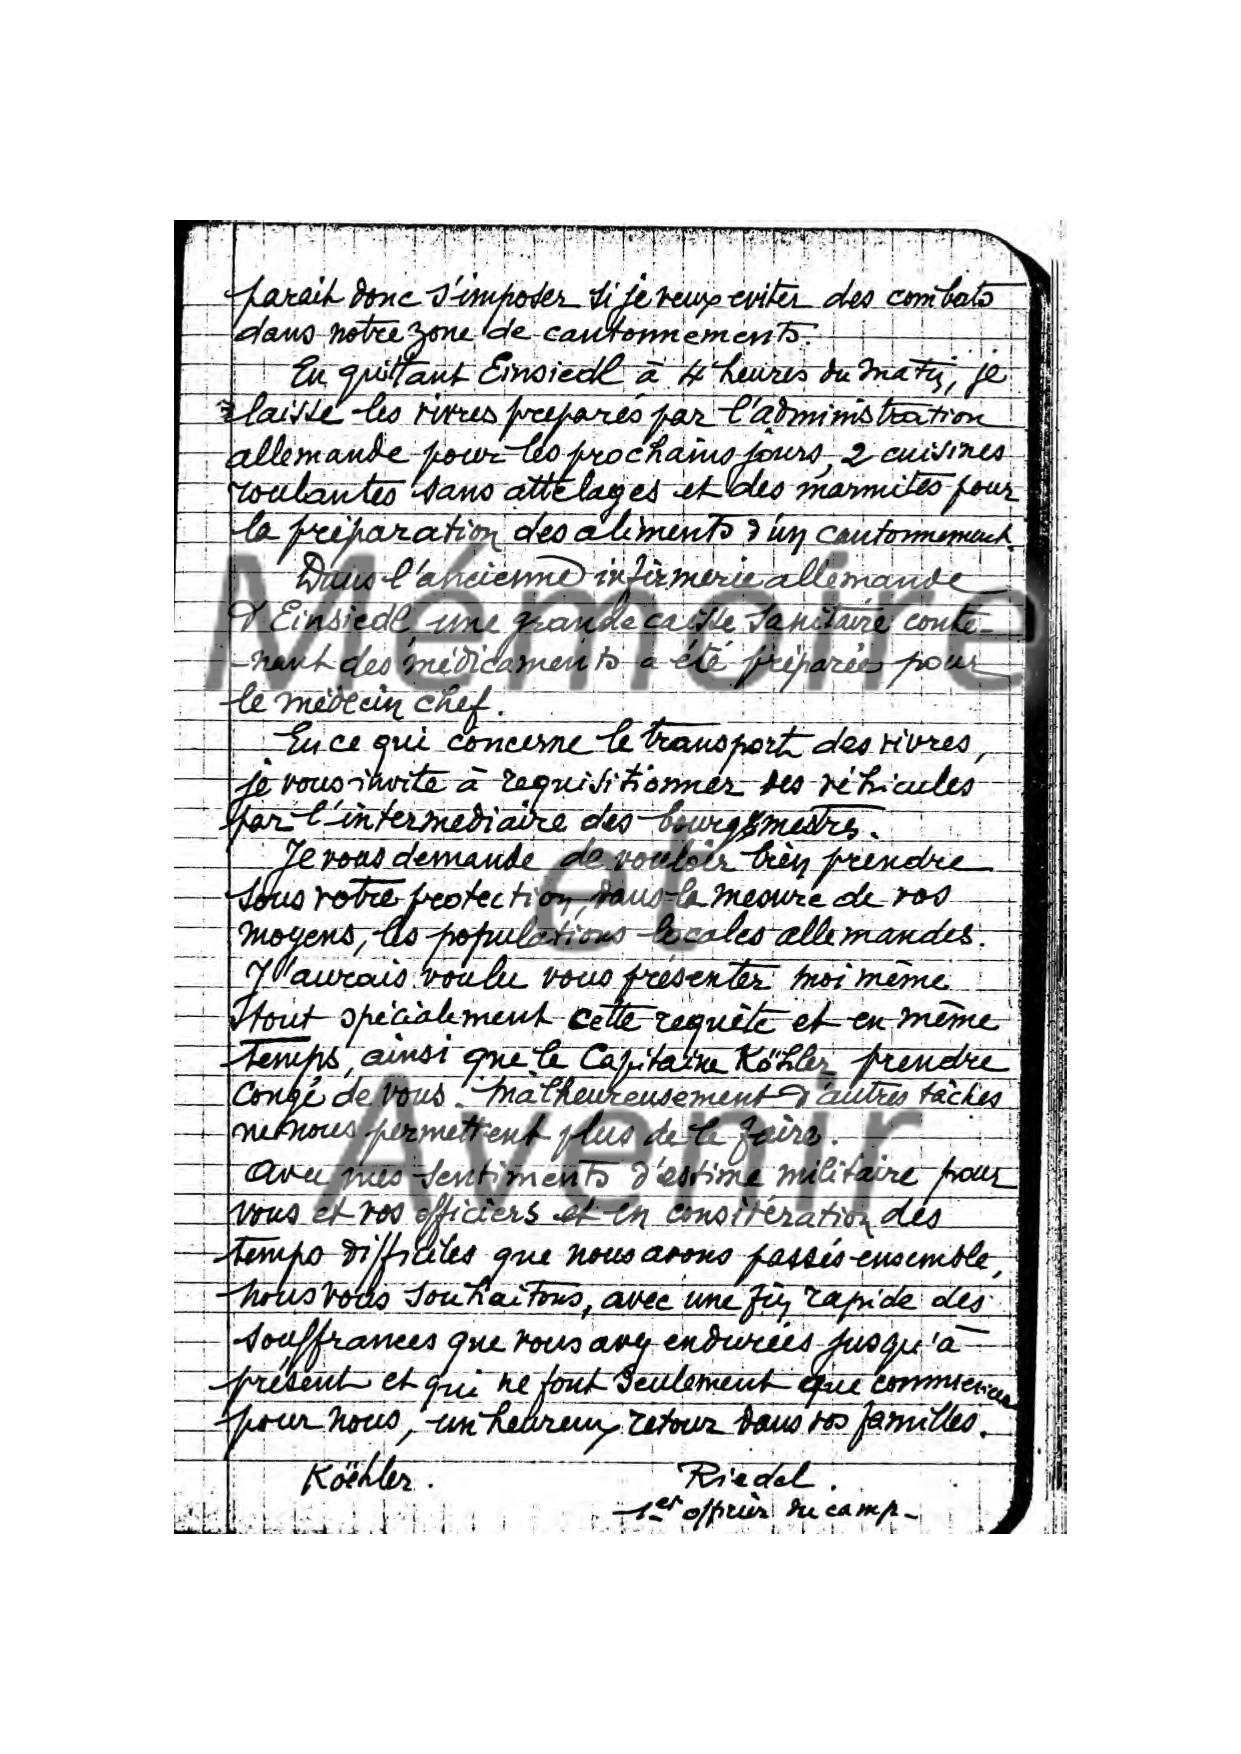 parait donc s'imposer si je veux eviter des combats
dans notre zone de cantonnements.
En quittant Einsiedl à 4 heures du matin, je
laisse les vivres préparés par l'administration
allemande pour les prochains jours, 2 cuisines
roulantes sans attelages et des marmites pour
la préparation des aliments d'un cantonnement.
Dans l'ancienne infirmerie allemande
d'Einsiedl une grande caisse sanitaire conte-
-nant des médicaments a été préparée pour
le médecin chef.
En ce qui concerne le transport des vivres,
je vous invite à requisitionner des véhicules
par l'intermediaire des bourgmestres.
Je vous demande de vouloir bien prendre
sous votre protection, dans la mesure de vos
moyens, les populations locales allemandes.
J'aurais voulu vous présenter moi même
tout spécialement cette requête et en même
temps, ainsi que le Capitaine Köhler prendre
congé de vous. Malheureusement d'autres tâches
ne nous permettent plus de le faire.
Avec mes sentiments d'estime militaire pour
vous et vos officiers et en considération des
temps difficiles que nous avons passés ensemble,
nous vous souhaitons, avec une fin rapide des
souffrances que vous avez endurées jusqu'à
présent et qui ne font seulement que commencer
pour nous, un heureux retour dans vos familles.
Köehler. Riedel.
1er officier du camp -
Mémoire
et
Avenir